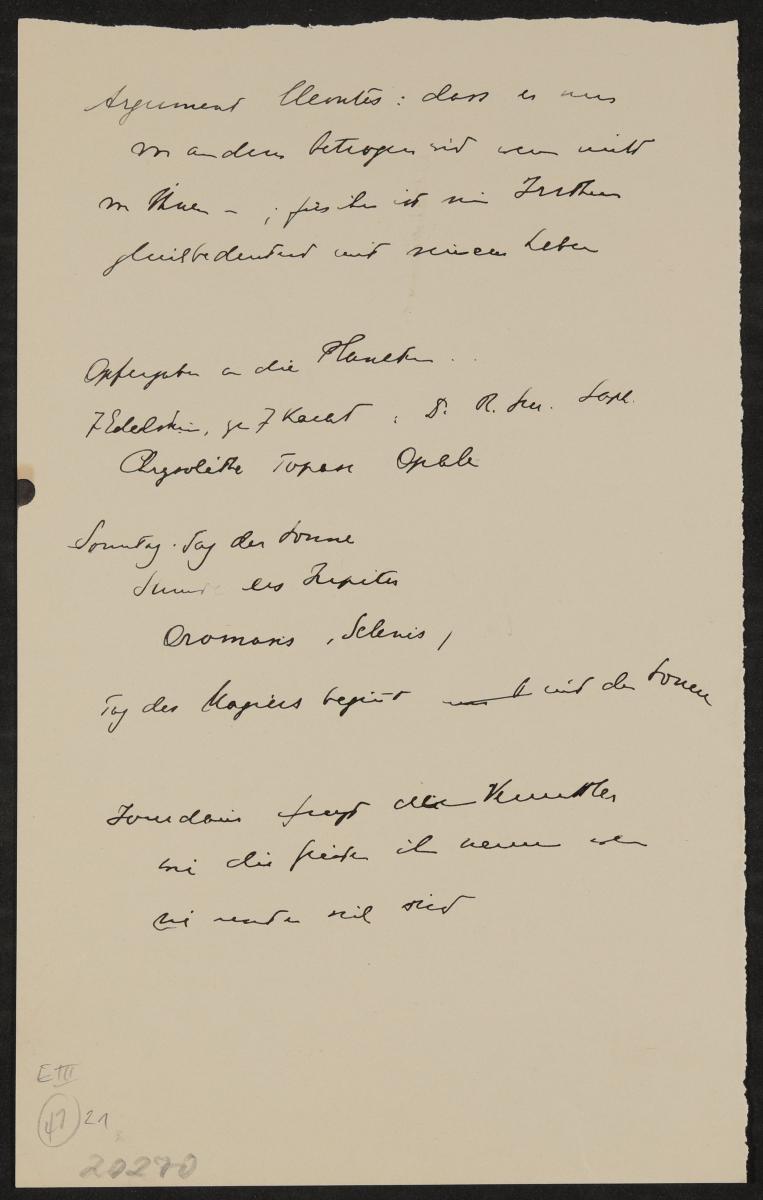 Argument Cleontes: dass er nur
von andern betrogen wird wenn nicht
von Ihnen – ; für ihn ist sein Irrthum
gleichbedeutend mit seinem Leben
Opfergaben an die Planeten . .
7 Edelsteine, zu 7 Karat : D. R. Sm. Saph.
Chrysolithe Topase Opale
Sonntag. Tag der Sonne
Stunde des Jupiter
Oromasis, Selenis,
Tag des Magiers beginnt mit der Sonne
Jourdain fragt den Künstler
wie die Geister ihn nennen wenn
sie unter sich sind
E III
47 21
20270